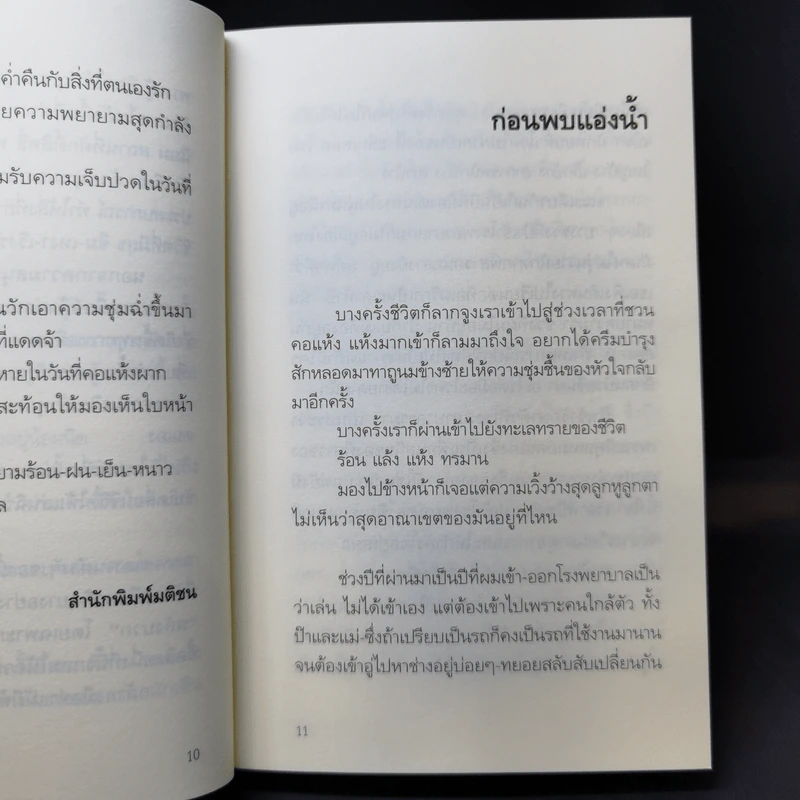 ค่ำคืนกับสิ่งที่ตนเองรัก
ยความพยายามสุดกำลัง
มรับความเจ็บปวดในวันที่
นวักเอาความชุ่มฉ่ำขึ้นมา
ที่แดดจ้า
หายในวันที่คอแห้งผาก
สะท้อนให้มองเห็นใบหน้า
ยามร้อน-ฝน-เย็น-หนาว
ล
สำนักพิมพ์มติชน
10
ก่อนพบแอ่งน้ำ
บางครั้งชีวิตก็ลากจูงเราเข้าไปสู่ช่วงเวลาที่ชวน
คอแห้ง แห้งมากเข้าก็ลามมาถึงใจ อยากได้ครีมบำรุง
สักหลอดมาทาถูนมข้างซ้ายให้ความชุ่มชื้นของหัวใจกลับ
มาอีกครั้ง
บางครั้งเราก็ผ่านเข้าไปยังทะเลทรายของชีวิต
ร้อน แล้ง แห้ง ทรมาน
มองไปข้างหน้าก็เจอแต่ความเวิ้งว้างสุดลูกหูลูกตา
ไม่เห็นว่าสุดอาณาเขตของมันอยู่ที่ไหน
ช่วงปีที่ผ่านมาเป็นปีที่ผมเข้า-ออกโรงพยาบาลเป็น
ว่าเล่น ไม่ได้เข้าเอง แต่ต้องเข้าไปเพราะคนใกล้ตัว ทั้ง
ป๊าและแม่-ซึ่งถ้าเปรียบเป็นรถก็คงเป็นรถที่ใช้งานมานาน
จนต้องเข้าอู่ไปหาช่างอยู่บ่อยๆ-ทยอยสลับสับเปลี่ยนกัน
11